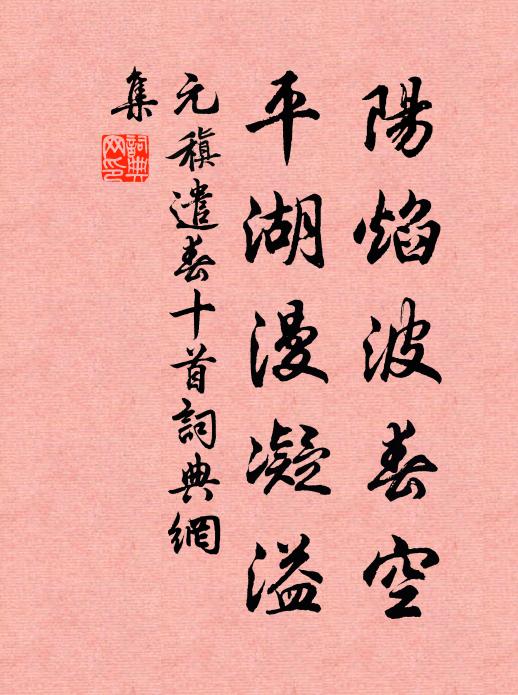 陽焰波春空
平湖漫凝溢
元稹遣春十首詞典網
集
詞典
网印